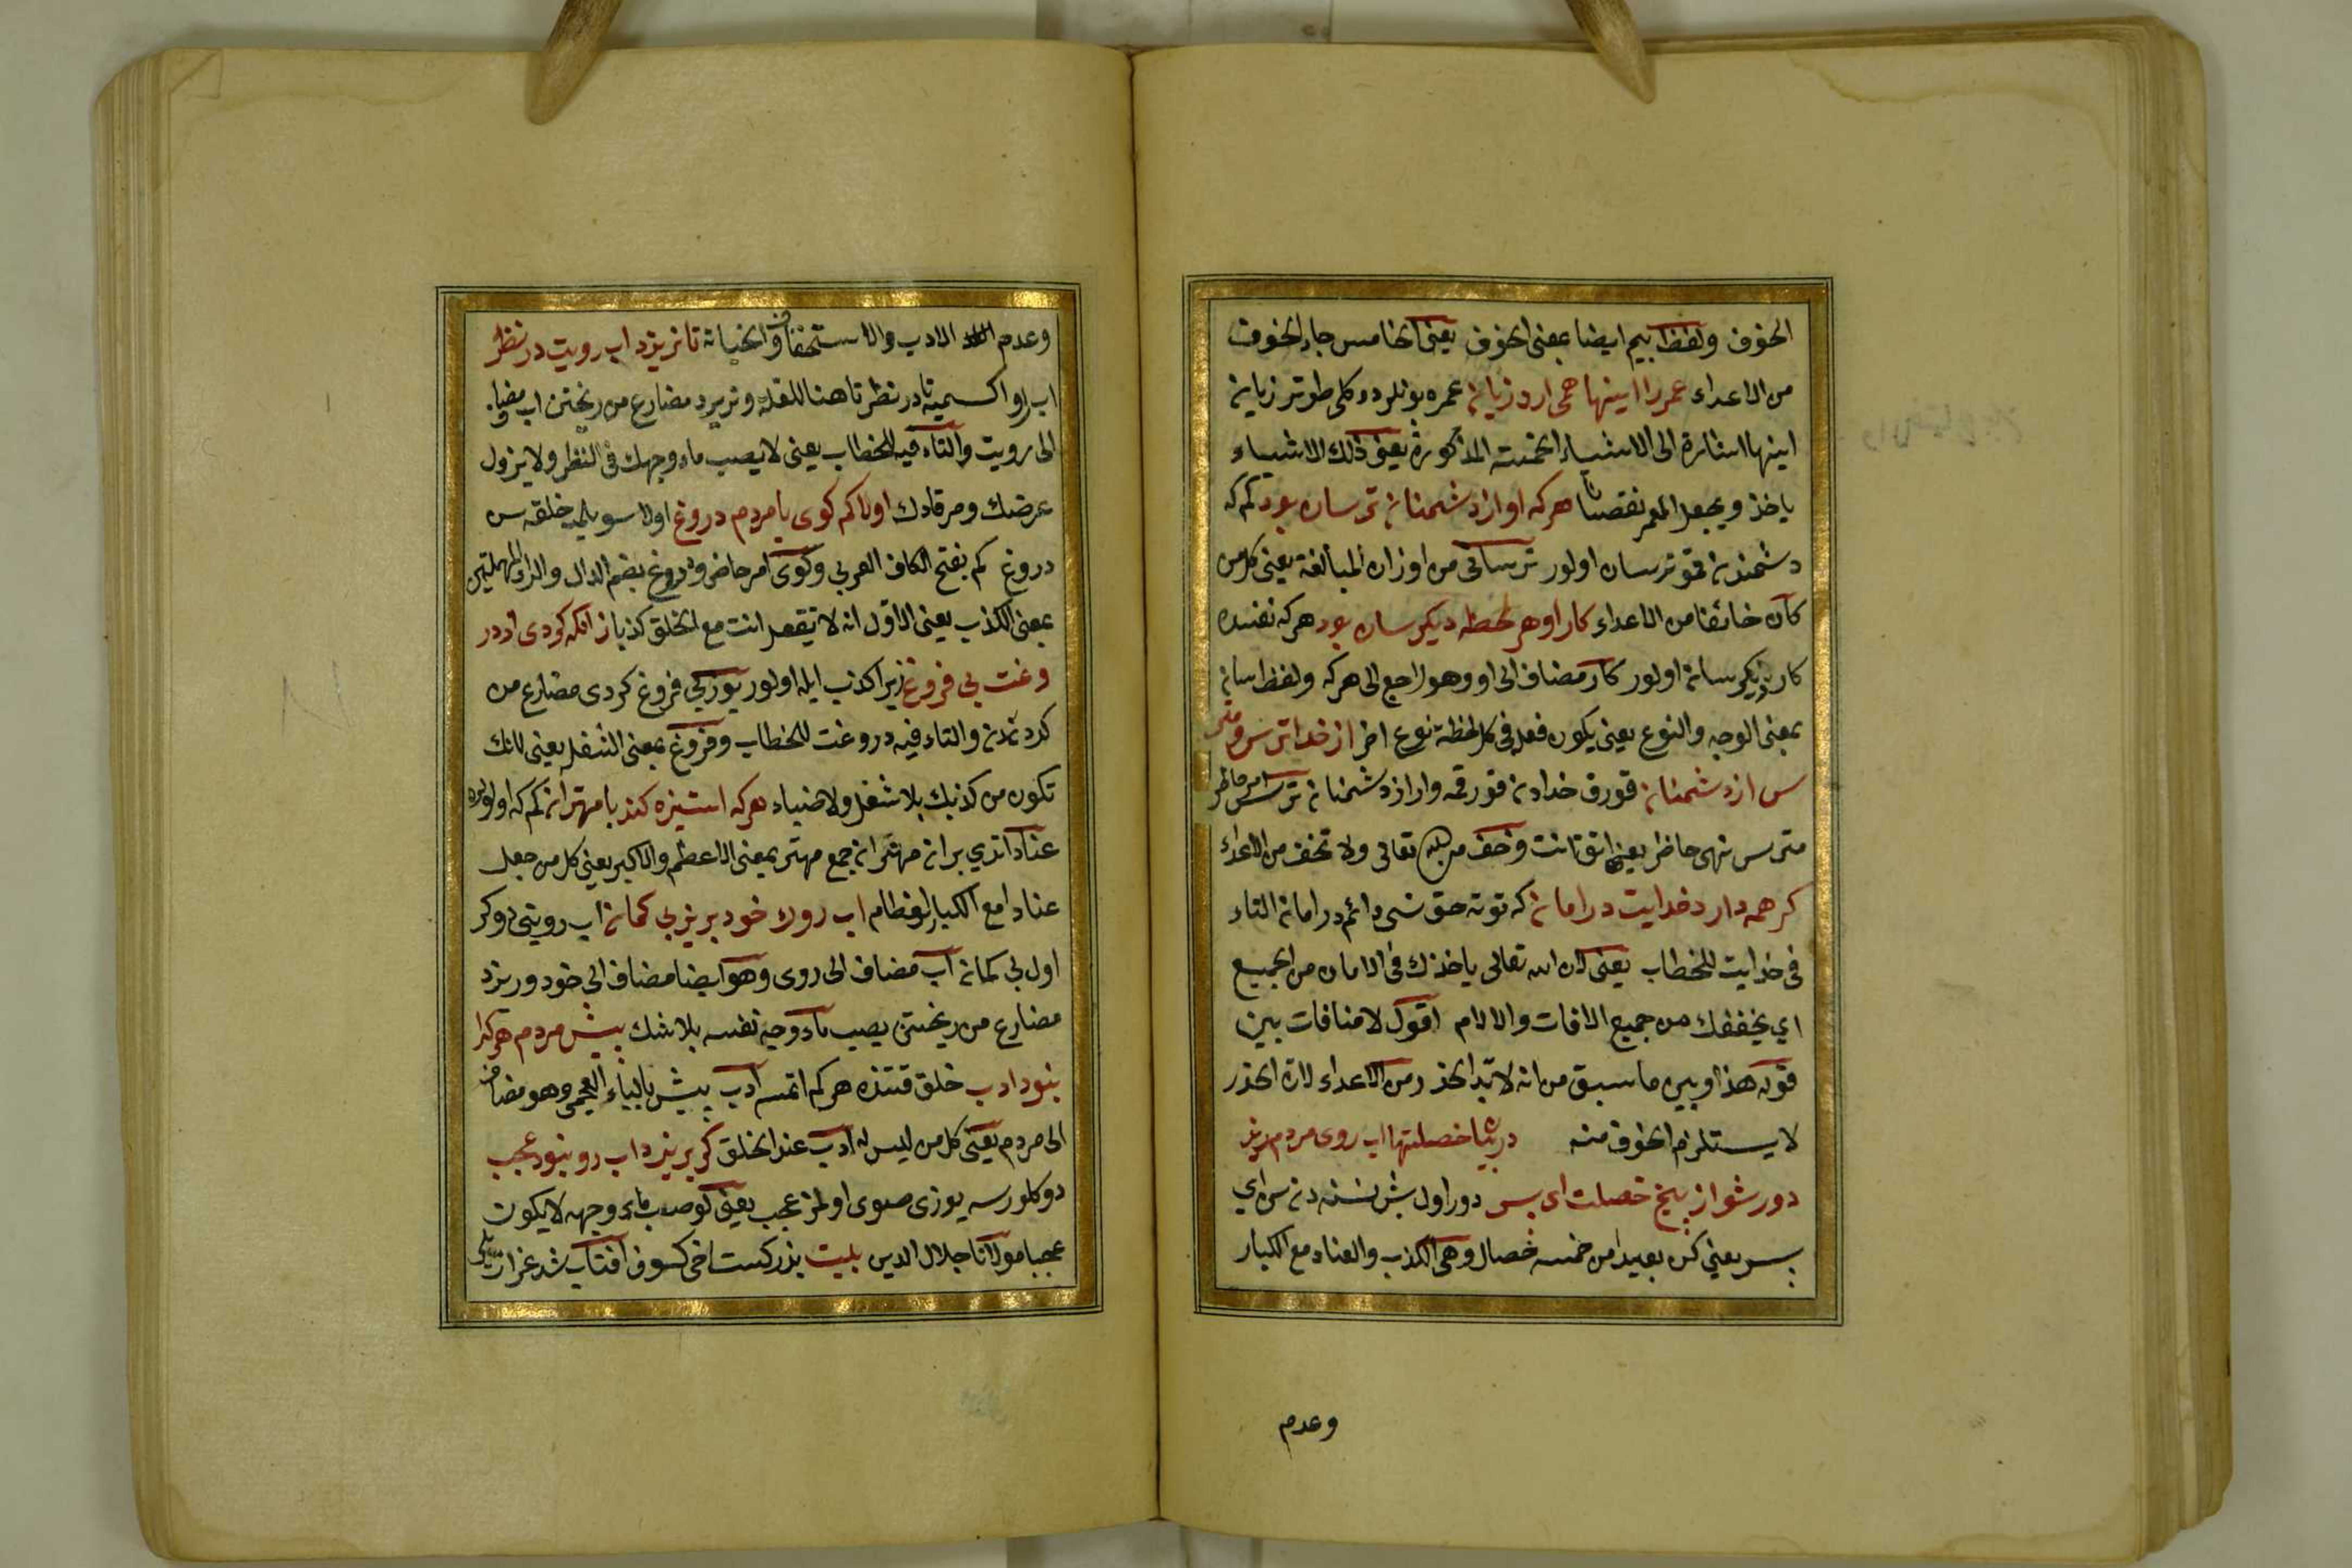 الخوف ولفظ بيم ايضا بمعنى الخوف يعنى الخامس جاء الخوف
من الاعداء عمر را اينها همى ارد زيان عمره بونلر دوكلى طوتر زيان
اينها اشارة الى الاشياء الخمسة المذكورة يعنى ذلك الاشياء
ياخذ ويجعل العمر نقصانا هر كه او از دشمنان ترسان بود كم كه
دشمندن قمو ترسان اولور ترسانى من اوزان المبالغة يعنى كل من
كان خائفا من الاعداء كار او هر لحظه ديكر سان بود هر كه نفسده
كار ديكر سان اولور كار مضاف الى او وهو راجع الى هر كه ولفظ سان
بمعنى الوجه والنوع يعنى يكون فعله فى كل لحظة نوع اخر از خدا ترس و متر
س از دشمنان قورق خدادن قورقمه وار از دشمنان ترس امر حاظر
مترس نهى حاظر يعنى اتق انت وخف من الله تعالى ولا تخف من الاعداء
كر همه دارد خدايت در امان كه توته حق سنى دائم در امان التاء
فى خدايت للخطاب يعنى لان الله تعالى ياخذك فى الامان من الجميع
اي يحفظك من جميع الافات والالام اقول لا منافات بين
قوله هذا وبين ما سبق من انه لا بد الحذر من الاعداء لان الحذر
لا يستلزم الخوف منه در بيان خصلتها اب روى مردم ريز
دور شو از پنج خصلت اى پسر دور اول بش نسنه دن اي
پسر يعني كن بعيدا من خمسه خصال وهى الكذب والعناد مع الكبار
وعدم
وعدم الادب والاستخفاف والخيانة تا نريزد اب رويت در نظر
اب او اكسميه تا در نظر تا هنا للعلة ونريزد مضارع من ريختن اب مضاف
الى رويت والتاء فيه للخطاب يعنى لا يصب ماء وجهك فى النظر ولا يزول
عرضك ومرقادك اولا كم كوى با مردم دروغ اولا سويلمه خلقه سن
دروغ كم بفتح الكاف العربى وكوى امر حاضر ودروغ بضم الدال والراء المهملتين
بمعنى الكذب يعنى الاول انه لا تفعل انت مع الخلق كذبا زانكه كردى از در
وغت بى فروغ زيرا كذب ايله اولور يوزك بى فروغ كردى مضارع من
كردندن والتاء فيه دروغت للخطاب وفروغ بمعنى الشغل يعنى لانك
تكون من كذبك بلا شغل ولا ضياء هر كه استيزه كند با مهتران كم كه اولولره
عناد اتدى بر ان مهتران جمع مهتر بمعنى الاعظم والاكبر يعنى كل من جعل
عنادا مع الكبار العظام اب روى خود بريزد بى كمان اب رويتى دوكر
اول بى كمان اب مضاف الى روى وهو ايضا مضاف الى خود وريزد
مضارع من ريختن يصب ماء وجه نفسه بلا شك پيش مردم هر كرا
نبود ادب خلق قتنده هر كم اتمسه ادب پيش بالباء العجمى وهو مضاف
الى مردم يعنى كل من ليس له ادب عند الخلق كر بريزد اب رو نبود عجب
دوكلورسه يوزى صوى اولمز عجب يعنى لو صب ماء وجهه لا يكون
عجبا مولانا جلال الدين بيت بذر كستاخى كسوف افتاب شد عزازيلى